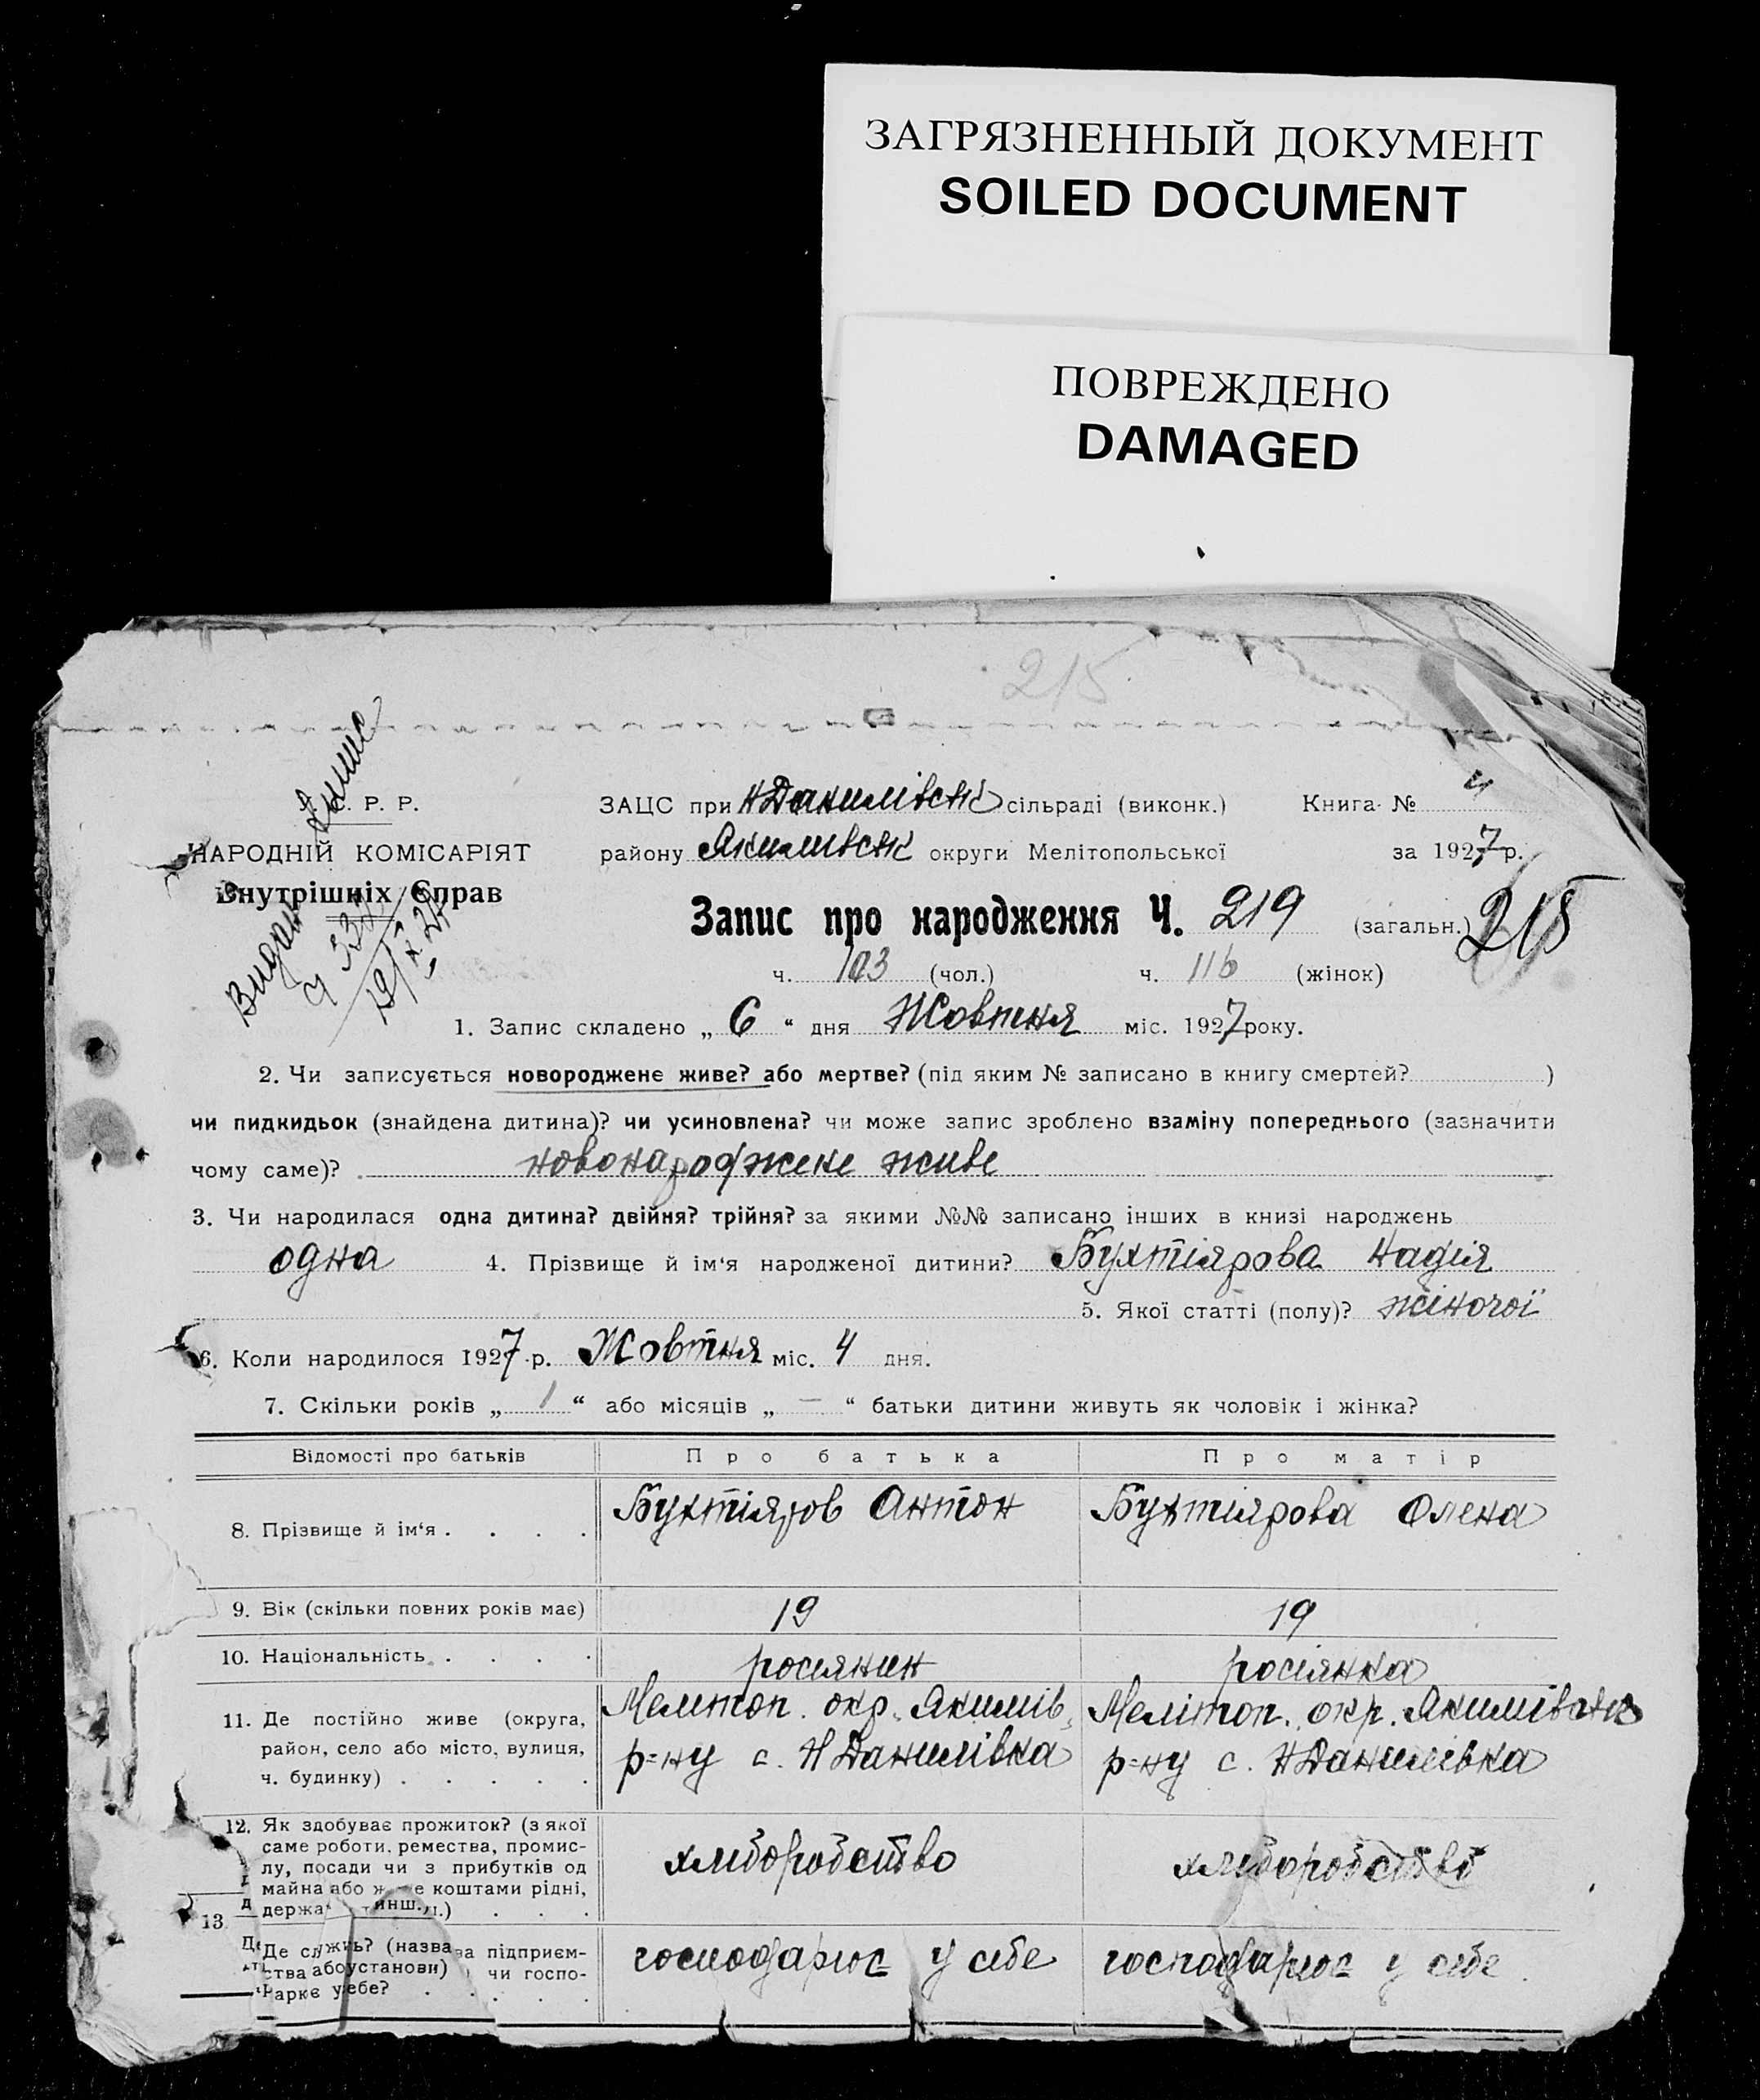 ЗАГРЯЗНЕННЫЙ ДОКУМЕНТ
SOILED DOCUMENT
ПОВРЕЖДЕНО
DAMAGED
215
Р. Р.
НАРОДНІЙ КОМІСАРІЯТ
Внутрішніх Справ
Видан
ЗАЦС при НДанилівськ сільраді (виконк.) Книга № 4
району Якимівськ округи Мелітопольської за 1927 р.
Запис про народження Ч. 219 (загальн.) 215
ч. 103 (чол.) ч. 116 (жінок)
1. Запис складено „ 6 “ дня Жовтня міс. 1927 року.
2. Чи записується новороджене живе? або мертве? (під яким № записано в книгу смертей? )
чи пидкидьок (знайдена дитина)? чи усиновлена? чи може запис зроблено взаміну попереднього (зазначити
чому саме)? новонароджене живе
3. Чи народилася одна дитина? двійня? трійня? за якими №№ записано інших в книзі народжень
одна 4. Прізвище й ім‘я народженої дитини? Бухтіярова Надія
5. Якої статті (полу)? жіночої
6. Коли народилося 1927 р. Жовтня міс. 4 дня.
7. Скільки років „ 1 “ або місяців „ — “ батьки дитини живуть як чоловік і жінка?
Відомості про батьків Про батька Про матір
8. Прізвище й ім‘я . . . . Бухтіяров Антон Бухтіярова Олена
9. Вік (скільки повних років має) 19 19
10. Національність . . . . росіянин росіянка
11. Де постійно живе (округа, Мелітоп. окр. Якимів. Мелітоп. окр. Якимівськ
район, село або місто, вулиця, р=ну с. НДанилівка р=ну с. НДанилівка
ч. будинку) . . . . .
12. Як здобуває прожиток? (з якої
саме роботи, ремества, промис-
лу, посади чи з прибутків од хліборобство хліборобство
майна або коштами рідні,
держа инш.)
13 Де служить? (назва підприєм- господарює у себе господарює у себе
ства або установи) чи госпо-
дарює у себе?